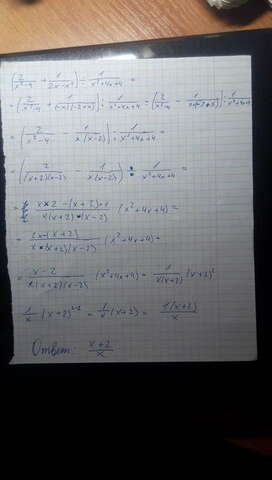 (2/(x²-4) + 1/(2x-x²)) : 1/(x²+4x+4) =
= (2/(x²-4) + 1/((-x)(-2+x))) : 1/(x²+4x+4) = (2/(x²-4) - 1/(x(-2+x))) : 1/(x²+4x+4)
= (2/(x²-4) - 1/(x(x-2))) : 1/(x²+4x+4) =
= (2/((x+2)(x-2)) - 1/(x(x-2))) : 1/(x²+4x+4)
= (x·2-(x+2)·1)/(x(x+2)·(x-2)) (x²+4x+4) =
= (2x-(x+2))/(x·(x+2)(x-2)) (x²+4x+4) =
= (x-2)/(x(x+2)(x-2)) (x²+4x+4) = 1/(x(x+2)) (x+2)²
1/x (x+2)²⁻¹ = 1/x (x+2) = 1(x+2)/x
Ответ: (x+2)/x